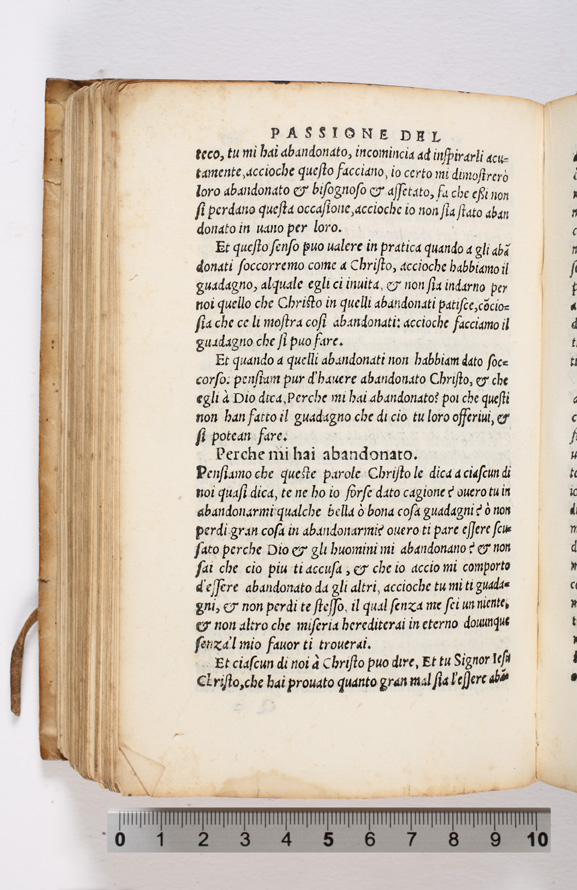 PASSIONE DEL
teco, tu mi hai abandonato, incomincia ad inſpirarli acu-
tamente, accioche queſto facciano, io certo mi dimoſtrerò
loro abandonato & biſognoſo & aſſetato, fa che eßi non
ſi perdano queſta occaſione, accioche io non ſia ſtato aban
donato in uano per loro.
Et queſto ſenſo puo ualere in pratica quando a gli abã
donati ſoccorremo come a Chriſto, accioche habbiamo il
guadagno, alquale egli ci inuita, & non ſia indarno per
noi quello che Chriſto in quelli abandonati patiſce, cõcio-
ſia che ce li moſtra coſi abandonati: accioche facciamo il
guadagno che ſi puo fare.
Et quando a quelli abandonati non habbiam dato ſoc-
corſo: penſiam pur d'hauere abandonato Chriſto, & che
egli à Dio dica, Perche mi hai abandonato? poi che queſti
non han fatto il guadagno che di cio tu loro offeriui, &
ſi potean fare.
Perche mi hai abandonato.
Penſiamo che queſte parole Chriſto le dica a ciaſcun di
noi quaſi dica, te ne ho io forſe dato cagione? ouero tu in
abandonarmi qualche bella ò bona coſa guadagni? ò non
perdi gran coſa in abandonarmi? ouero ti pare eſſere ſcu-
ſato perche Dio & gli huomini mi abandonano? & non
ſai che cio piu ti accuſa, & che io accio mi comporto
d'eſſere abandonato da gli altri, accioche tu mi ti guada-
gni, & non perdi te ſteſſo, il qual ſenza me ſei un niente,
& non altro che miſeria herediterai in eterno douunque
ſenza'l mio fauor ti trouerai.
Et ciaſcun di noi à Chriſto puo dire, Et tu Signor Ieſu
Chriſto, che hai prouato quanto gran mal ſia l'eſſere abãn-
0 1 2 3 4 5 6 7 8 9 10